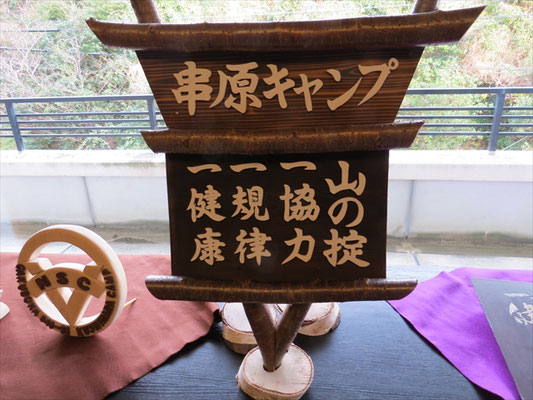 串原キャンプ
山の掟
一協力
一規律
一健康
NSC